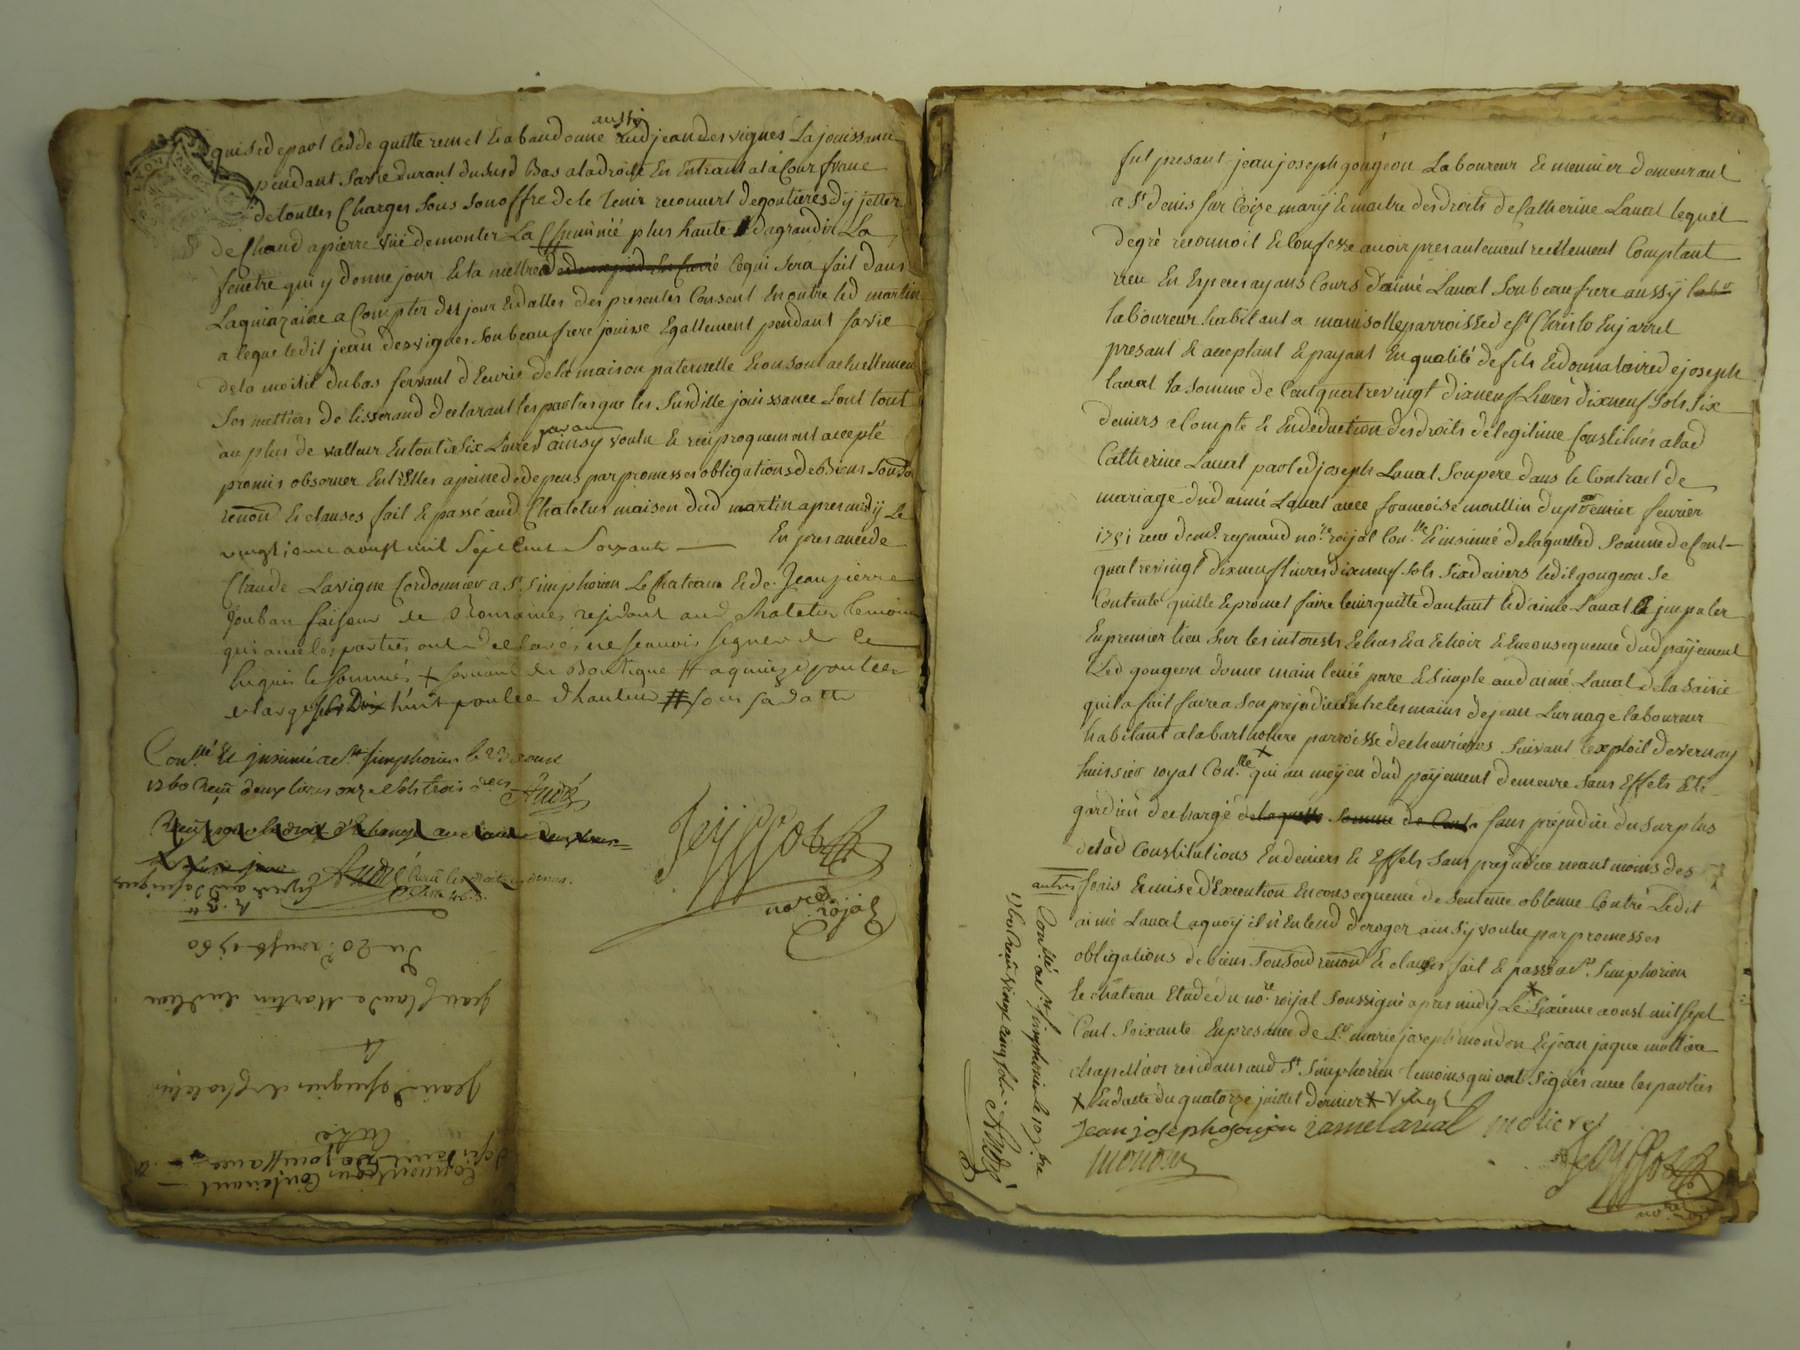 aussy
qui sed epart cedde quitte remet et abandonne aud jean desvignes La jouissance
pendant sa vie durant du susd Bas a la droite En Entrant a la Cour franc
de touttes Charges sous son offre de le tenir recouvert de goutieres d'y jetter
de Chaud a pierre vüe de monter La Cheminée plus haute d'agrandir La
fenetre qui y donne jour Et la mettre ce qui sera fait dans
La quinzaine a Compter du jour Et dattes des presentes Consent En outre led martin
a leque ledit jean desvignes son beau frere jouisse Egallement pendant sa vie
de la moitié du bas servant d'Ecurie de la maison paternelle Et ou sont actuellement
ses mettiers de tisserand declarant les parties que les susditte jouissance sont tout
au plus de valleur En tout de six Livres par an ainsy voulu et reciproquement accepté
promis observer Entr'Elles a peine de depens par promesses obligations de Biens soub^on
renon^on et clauses fait et passé aud Chatelus maison dud martin apres midy Le
vingtieme aoust mil sept Cent soixante En presance de
Claude Lavigne Cordonnier a S^t Simphorien Le Chateau et de Jean pierre
Jouban faiseur de residant aud Chatelus temoins
qui avec les parties ont declarés ne scavoir signer de ce
Enquis et sommés + servant de Boutique # a quinze poulces
de large sur Dix huit poulce d'hauteur # sous sa datte
Con^llé Et jnsinué a S^t simphorien le 23 aoust
1760 Reçu deux livres onze sols trois d^ers André
André
Jeyssot
no^re roïal
Du 20^e aoust 1760
jean Claude Martin
4
jean desvignes de Chatelus
fut presant jean joseph gougeon Laboureur et meunier demeurant
a S^t denis sur Coize mary et maitre des droits de Catherine Laval lequel
de gré reconnoit et Confesse avoir presantement reellement Comptant
reçu En Especes ayans Cours d'aimé Laval son beau frere aussÿ
laboureur habitant a manisolle parroisse de S^t Christo En jarret
presant et acceptant et payant En qualité de fils Et donnataire de joseph
laval la somme de Cent quatre vingt dixneuf Livres dixneuf sols six
deniers a Compte et En deduction des droits de legitime Constitués a lad
Catherine Laval par led joseph Laval son pere dans le Contrat de
mariage dud aimé Laval avec francoise moullin du premier fevrier
1751 reçu de m^e reynaud no^re roijal Con^llé Et insinué de laquelle d. somme de Cent
quatre vingt dixneuf livres dixneuf sols six deniers ledit gougeon se
Contente quitte Et promet faire tenir quitte d'autant led aimé Laval et jmputer
En premier lieu sur les interests Echus Et a Echoir et En consequence dud païjement
Led gougeon donne main levée pure et simple aud aimé Laval de la saisie
qu'il a fait faire a son prejudice Entre les mains de jean Lurnage laboureur
habitant a la bartholiere parroisse de chevrieres suivant l'exploit de vernay
huissier royal Con^llé × qui au moÿen dud païjement demeure sans Effets Et le
gardien dechargé de laquelle somme de Cent sans prejudice du surplus
de lad Constitutions En deniers et Effets sans prejudice neant moins des
autres frais Et mise d'Execution En consequence de sentence obtenue Contre Ledit
aimé Laval a quoy il n'Entend deroger ainsy voulu par promesses
obligations de biens soubs^on renon^on et clauses fait et passé a S^t Simphorien
le chateau Etude du no^re roijal soussigné apres midy Le sixieme aoust mil sept
Cent soixante En presance de s^r marie joseph mondon Et jean jaque mottiere
chapelliers residans aud S^t Simphorien temoins qui ont signés avec les parties
× En datte du quatorze juillet dernier × vingt
Jean joseph gougon eame laval motiere
mondon
Jeyssot
no^re roïal
Con^llé a S^t simphorien le 10 7^bre
1760 Reçu vingt cinq sols André